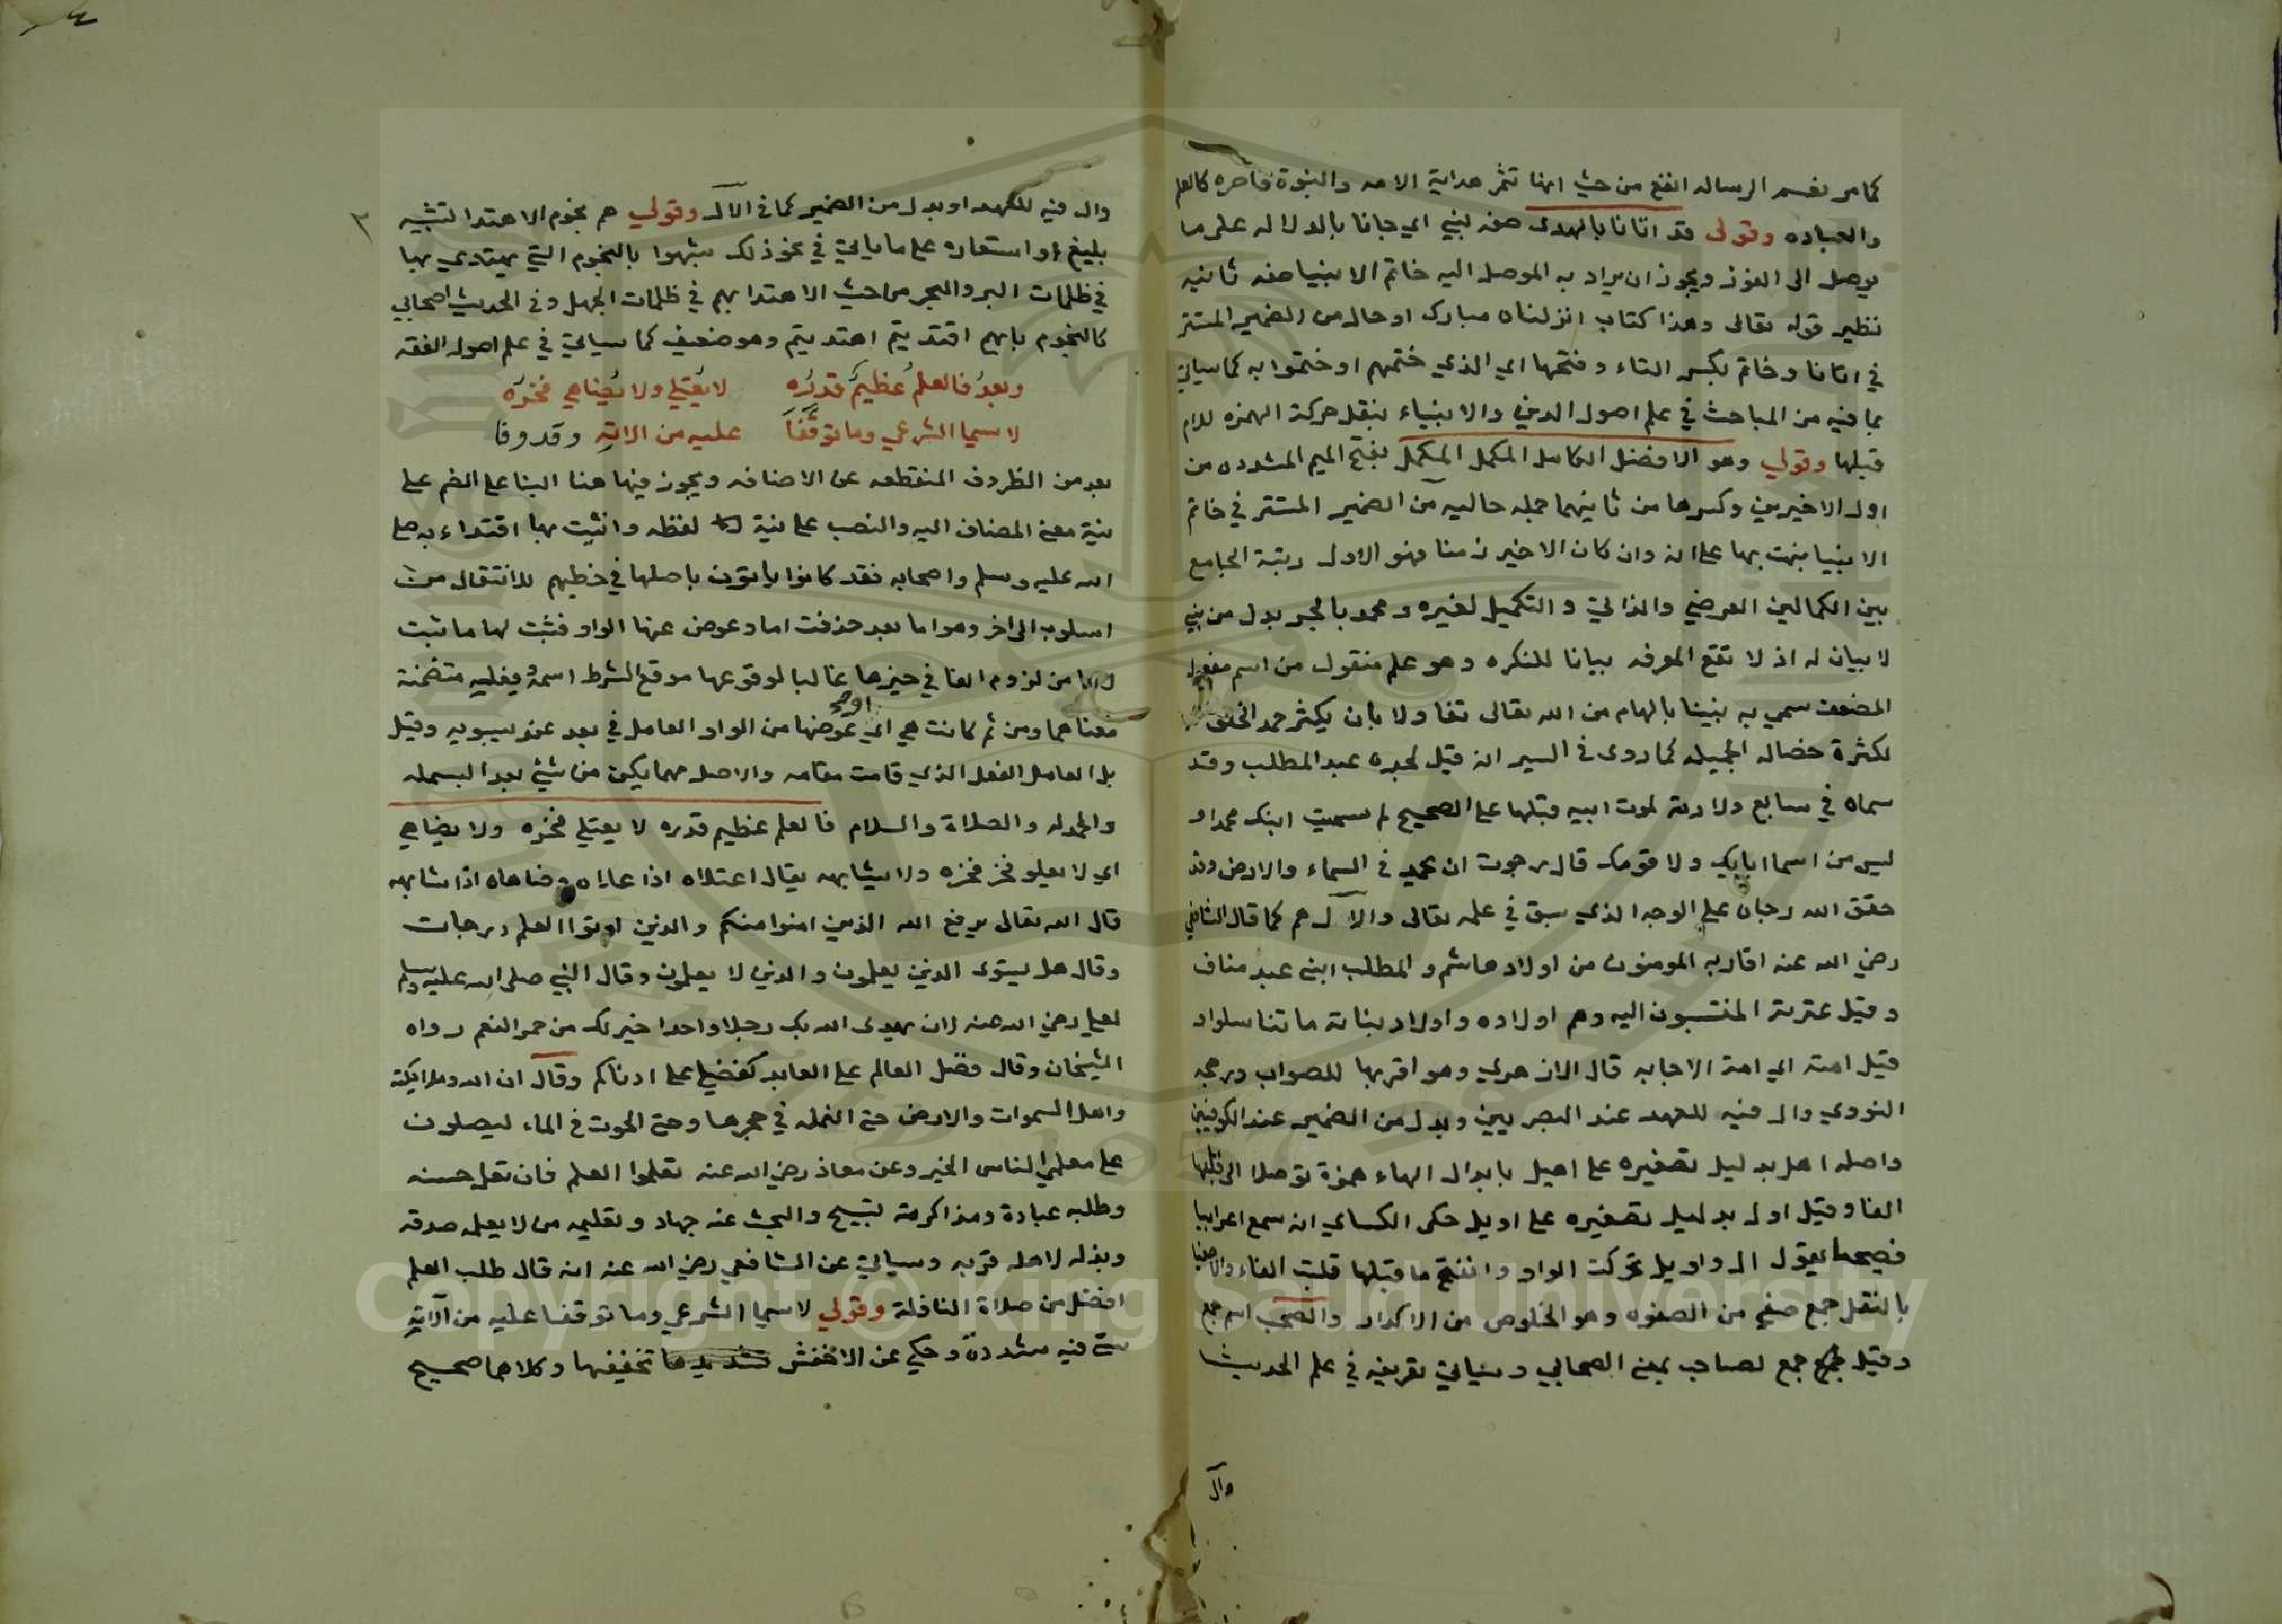 كما مر نعم الرساله انفع من حيث انها تثمر هداية الامه والنبوة قاصره كالعلم
والعباده وقولي قد اتانا بالهدى صفه لنبي اي جانا بالدلاله على ما
يوصل الى الفوز ويجوز ان يراد به الموصل اليه خاتم الانبيا صفه ثانيه
نظير قوله تعالى وهذا كتاب انزلناه مبارك او حال من الضمير المستتر
في اتانا وخاتم بكسر التاء وفتحها اي الذي ختمهم او ختموا به كما سياتي
بما فيه من المباحث في علم اصول الدين والانبياء بنقل حركة الهمزه للام
قبلها وقولي وهو الافضل الكامل المكمل المكمل بفتح الميم المشدده من
اول الاخيرين وكسرها من ثانيهما جمله حاليه من الضمير المستتر في خاتم
الانبيا نبهت بها على انه وان كان الاخير زمنا فهو الاول رتبة الجامع
بين الكمالين العرضي والذاتي والتكميل لغيره ومحمد بالجر بدل من نبي
لا بيان له اذ لا تقع المعرفه بيانا للنكره وهو علم منقول من اسم مفعول
المضعف سمي به نبينا بالهام من الله تعالى تفاولا بان يكثر حمد الخلق
لكثرة خصاله الجميله كما روى في السير انه قيل لجده عبد المطلب وقد
سماه في سابع ولادته لموت ابيه قبلها على الصحيح لم سميت ابنك محمدا و
ليس من اسما ابايك ولا قومك قال رجوت ان يحمد في السماء والارض وقد
حقق الله رجاه على الوجه الذي سبق في علمه تعالى والآل هم كما قال الشافعي
رضي الله عنه اقاربه المومنون من اولاد هاشم والمطلب ابني عبد مناف
وقيل عترته المنتسبون اليه وهم اولاده واولاد بناته ما تناسلوا و
قيل امته اي امة الاجابه قال الازهري وهو اقربها للصواب ورجحه
النووي وال فيه للعهد عند البصريين وبدل من الضمير عند الكوفيين
واصله اهل بدليل تصغيره على اهيل بابدال الهاء همزة توصلا الى قلبها
الفا وقيل اول بدليل تصغيره على اويل حكى الكساي انه سمع اعرابيا
فصيحا يقول ال واويل تحركت الواو وانفتح ما قبلها قلبت الفاء والاصفيا
بالنقل جمع صفي من الصفوه وهو الخلوص من الاكدار والصحب اسم جمع
وقيل جمع لصاحب بمعنى الصحابي وسياتي تعريفه في علم الحديث
وال
٤
٣
وال فيه للعهد او بدل من الضمير كما في الآل وقولي هم نجوم الاهتدا تشبيه
بليغ او استعاره على ما ياتي في نحو ذلك شبهوا بالنجوم التي يهتدي بها
في ظلمات البر والبحر من حيث الاهتدا بهم في ظلمات الجهل وفي الحديث اصحابي
كالنجوم بايهم اقتديتم اهتديتم وهو ضعيف كما سياتي في علم اصول الفقه
وبعدُ فالعلمُ عظيمٌ قدرُه لا يُعتلي ولا يُضاهي فخرُه
لا سيما الشرعي وما توقفا عليه من الاته وقد وفا
بعد من الظروف المنقطعه عن الاضافه ويجوز فيها هنا البنا على الضم على
نية معنى المضاف اليه والنصب على نية لفظه وانثيت بها اقتداء به صلى
الله عليه وسلم واصحابه فقد كانوا ياتون باصلها في خطبهم للانتقال من
اسلوب الى اخر وهو اما بعد حذفت اما وعوض عنها الواو فثبت لها ما ثبت
لاما من لزوم الفا في حيزها غالبا لوقوعها موقع الشرط اسمه وفعليه متضمنة
معناهما ومن ثم كانت هي اي عوضها من الواو العامل في بعد عند سيبويه وقيل
بل العامل الفعل الذي قامت مقامه والاصل مهما يكن من شيء بعد البسمله
والحمدله والصلاة والسلام فالعلم عظيم قدره لا يعتلي فخره ولا يضاهي
اي لا يعلو فخر فخره ولا يشابهه يقال اعتلاه اذا علاه وضاهاه اذا شابهه
قال الله تعالى يرفع الله الذين امنوا منكم والذين اوتوا العلم درجات
وقال هل يستوى الذين يعلمون والذين لا يعلمون وقال النبي صلى الله عليه وسلم
لعلي رضي الله عنه لان يهدى الله بك رجلا واحدا خير لك من حمر النعم رواه
الشيخان وقال فضل العالم على العابد كفضلي على ادناكم وقال ان الله وملايكته
واهل السموات والارض حتى النمله في جحرها وحتى الحوت في الماء ليصلون
على معلمي الناس الخير وعن معاذ رضي الله عنه تعلموا العلم فان تعلمه حسنه
وطلبه عبادة ومذاكرته تسبيح والبحث عنه جهاد وتعليمه من لا يعلمه صدقه
وبذله لاهله قربه وسياتي عن الشافعي رضي الله عنه انه قال طلب العلم
افضل من صلاة النافلة وقولي لا سيما الشرعي وما توقفا عليه من آلاته
سي فيه مشددة وحكي عن الاخفش تخفيفها وكلاهما صحيح
Copyright © King Saud University